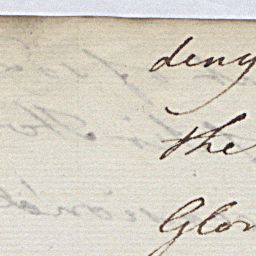 deny
the
Glor